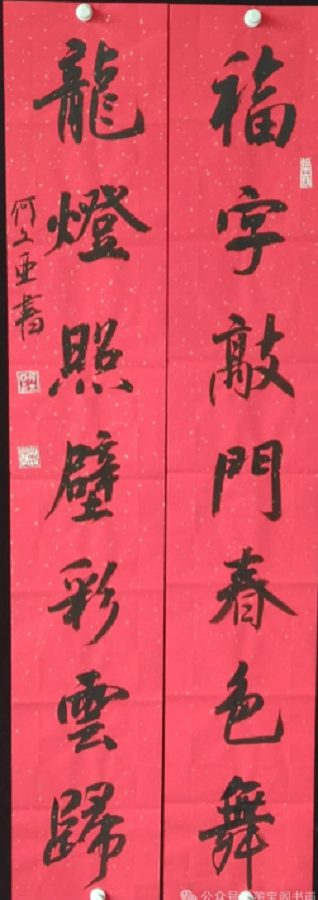 福字敲門春色舞
龍燈照壁彩雲歸
何上亜書
公众号